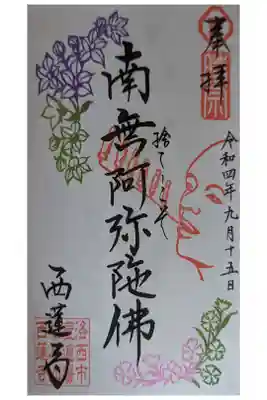 奉拝
令和四年九月十五日
捨てゝこそ
南無阿弥陀佛
西蓮寺